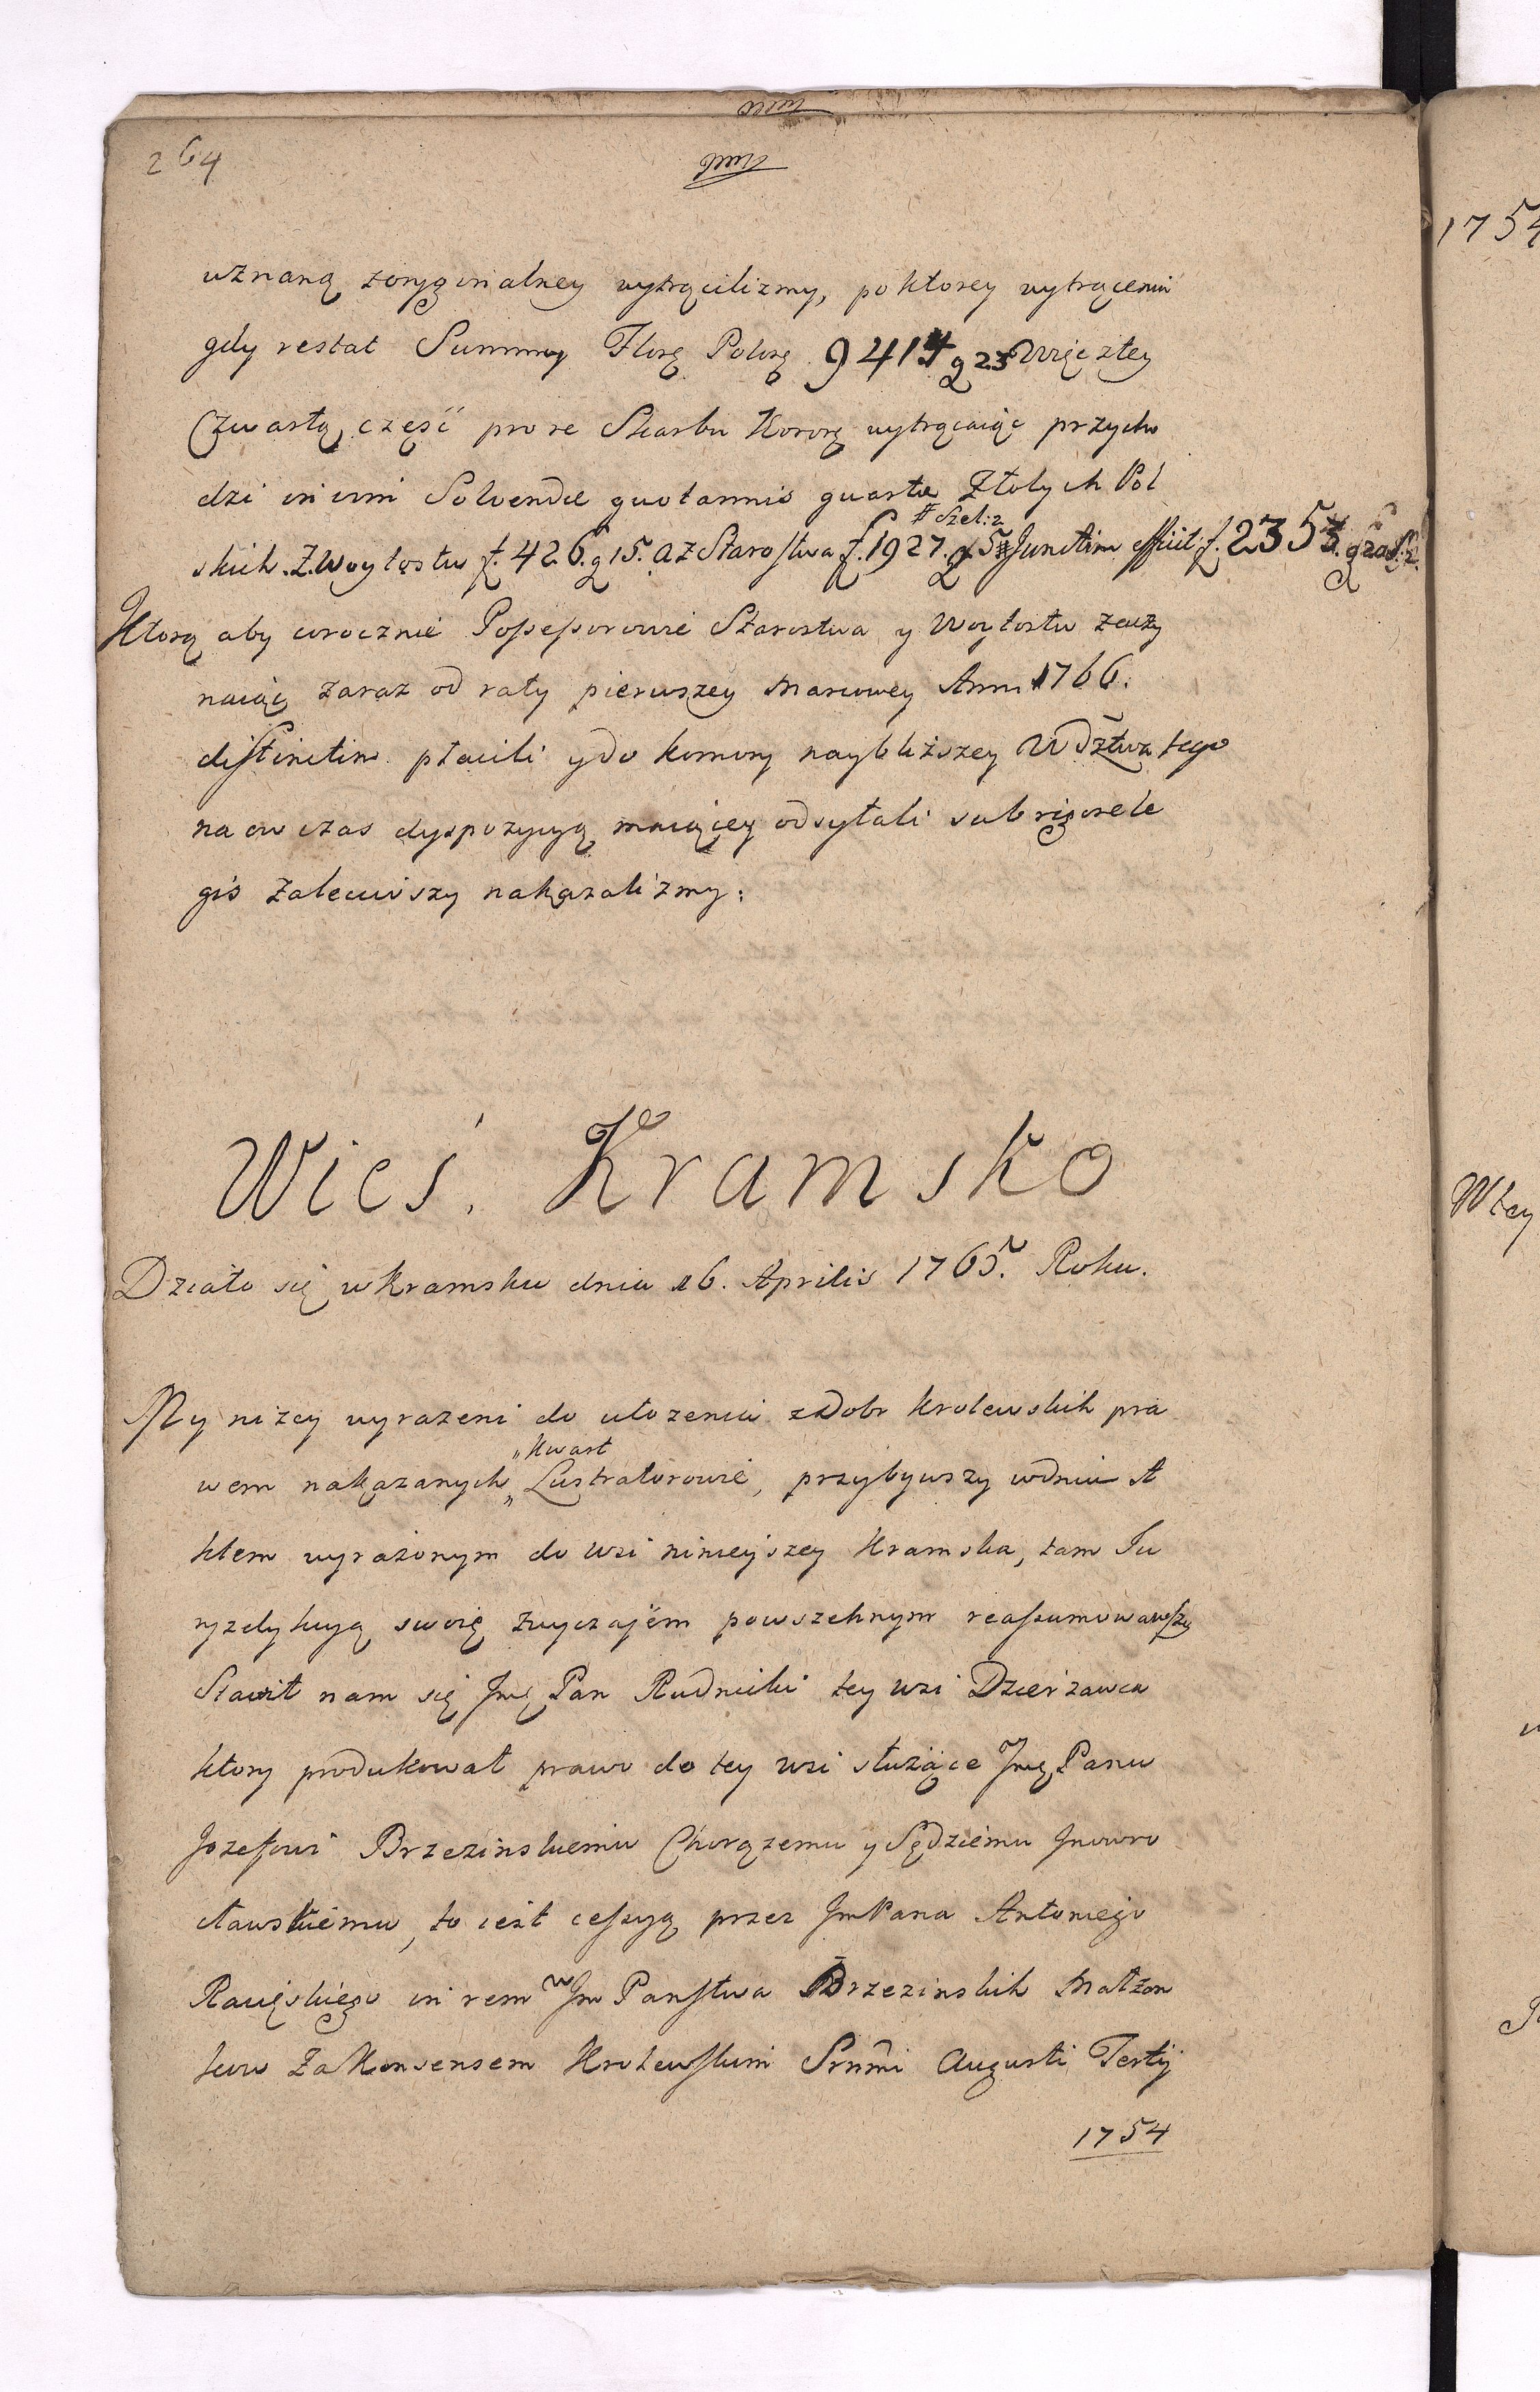 264
uznaną zoryginalney wytrącilizmy, po ktorey wytrąceniu
gdy restat Summy Florę Polorę 9414 g 23 Więc ztey
Czwartą część pro re Skarbu Kororę wytrącaiąc przycho
dzi inivim Solvendae quotannis quartae Złotych Pol
# Szel: 2
skich. Z. Woytostw f. 426. g 15. a z Starostwa f. 1927. g 5 Junctim efficit f. 2353. g 20
Ktorą aby corocznie Possessorowie Starostwa y Woytostw zaczy
naiąc zaraz od raty pierwszey Marcowey Anni 1766.
distinctim płacili y do komory naybliższey Wdztwa tego
na ow czas dyspozycyą maiącey odsyłali sub rigore le
gis zaleciwszy nakazalizmy:
Wieś. Kramsko
Działo się w Kramsku dnia 16. Aprilis 1765. Roku.
My nizey wyrazeni do ułozenia z Dobr Krolewskich pra
„Kwart
wem nakazanych „ Lustratorowie, przybywszy w dniu A
ktem wyrażonym do wsi ninieyszey Kramska, tam Ju
ryzdykcyą swoię zwyczajem powszechnym reassumowawszy
Stawił nam się Jmę Pan Rudnicki tey wsi Dzierżawca
ktory produkował prawo do tey wsi służące Jmę Panu
Jozefowi Brzezinskiemu Chorązemu y Sędziemu Jnowro
cławskiemu, to iest cessyą przez Jm Pana Antoniego
Racięskiego in rem W Jm Panstwa Brzezinskich Małżon
kow za Konsensem Krolewskim Srnmi Augusti Tertij
1754
1754
Wtey